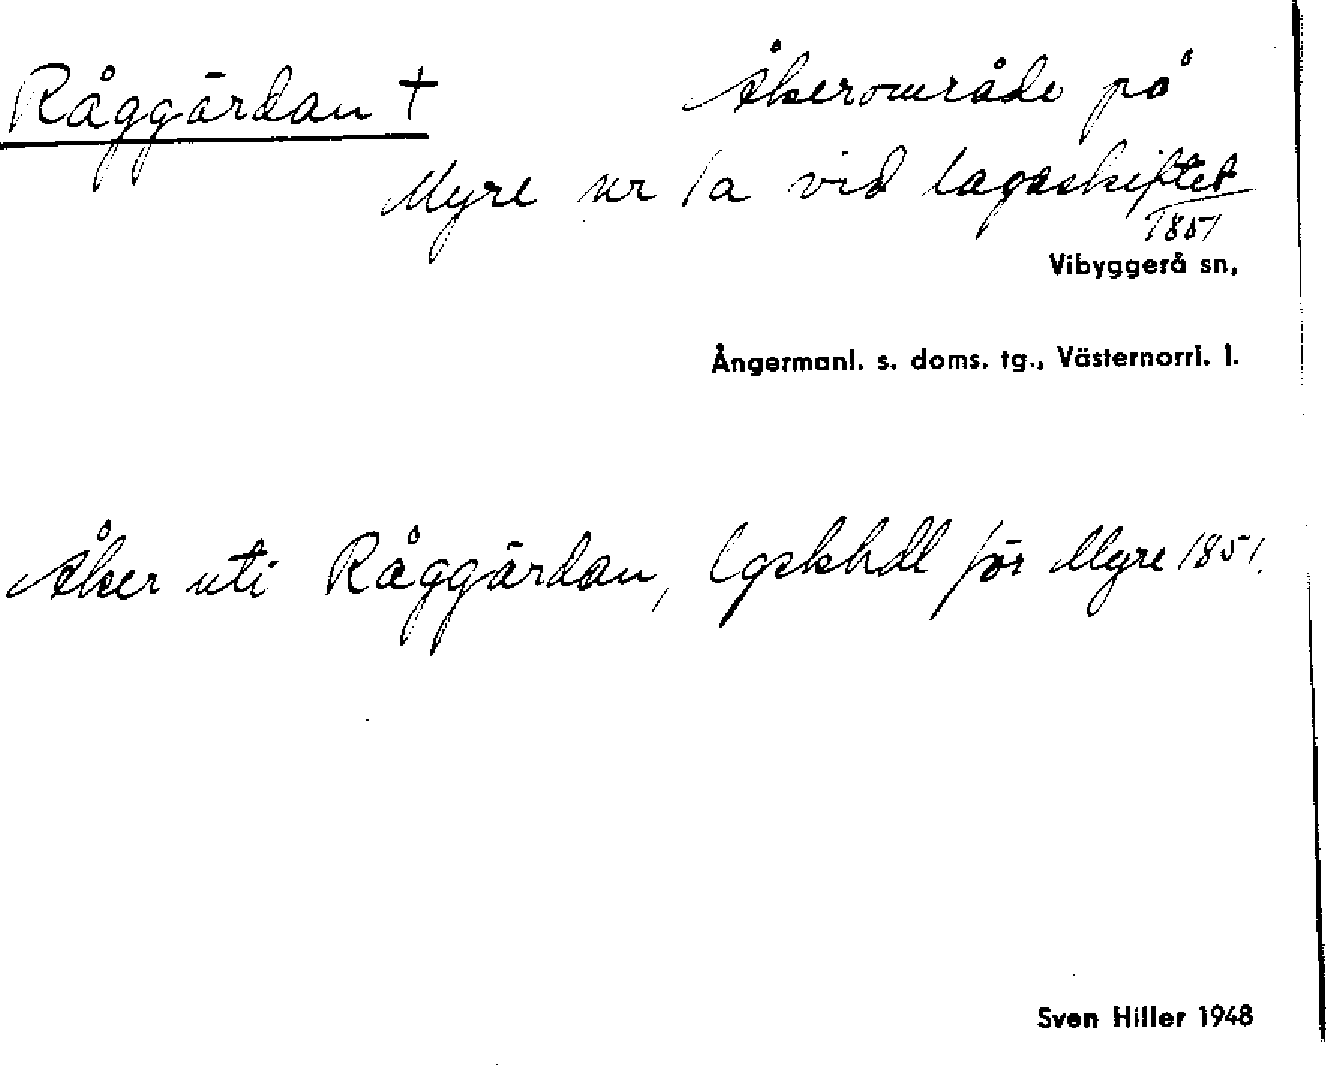 Råggärdan † Åkerområde på
Myre nr 1a vid lagaskiftet
1851
Vibyggerå sn,
Ångermanl. s. doms. tg., Västernorrl. l.
Åker uti Råggärdan, lgskhdl för Myre 1851.
Sven Hiller 1948